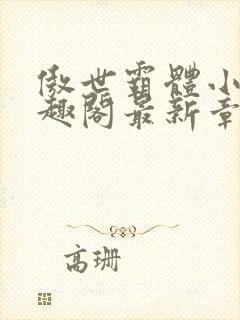 傲世霸體小
趣閣最新章
高珊